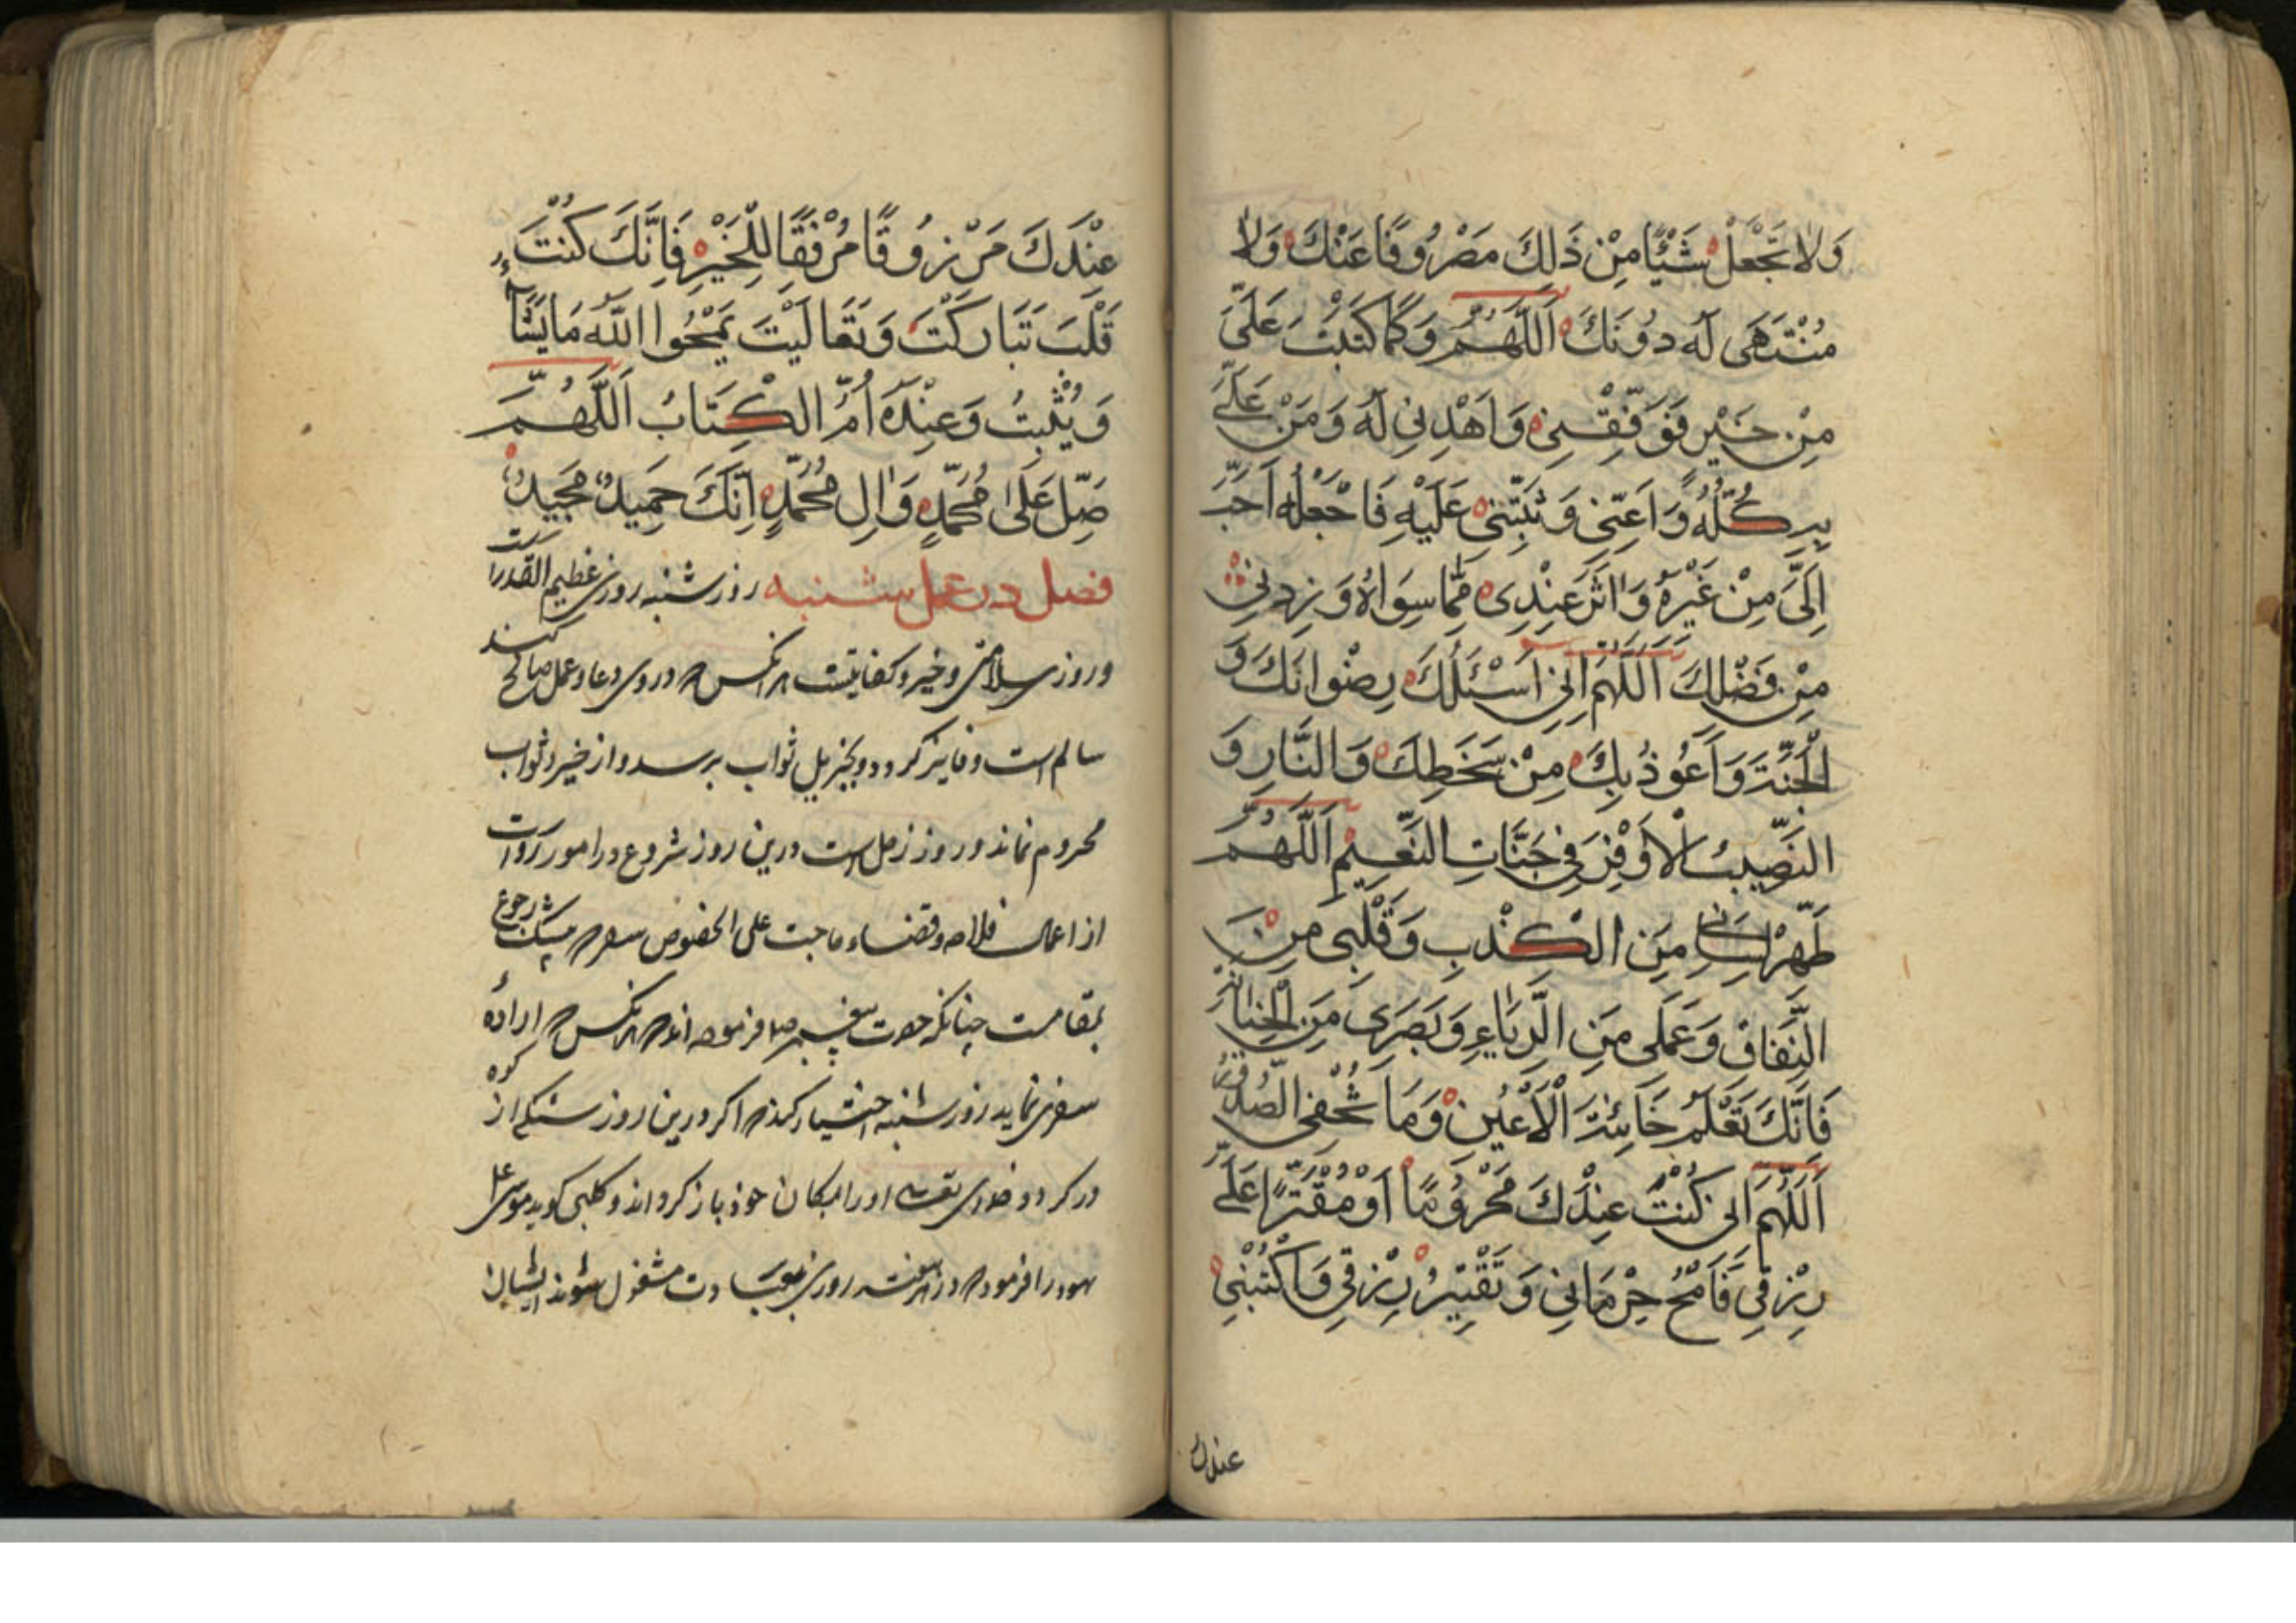 وَلَا تَجْعَلْ شَيْئًا مِنْ ذَلِكَ مَصْرُوفًا عَنْكَ وَلَا
مُنْتَهَى لَهُ دُونَكَ اَللّهُمَّ وَكَمَا كَتَبْتَ عَلَيَّ
مِنْ خَيْرٍ فَوَفِّقْنِي وَاهْدِنِي لَهُ وَمَنْ عَلَيَّ
بِهِ كُلِّهِ وَاَعِنِّي وَثَبِّتْنِي عَلَيْهِ فَاجْعَلْهُ اَحَبَّ
اِلَيَّ مِنْ غَيْرِهِ وَاٰثَرَ عِنْدِي مِمَّا سِوَاهُ وَزِدْنِي
مِنْ فَضْلِكَ اَللّهُمَّ اِنِّي اَسْئَلُكَ رِضْوَانَكَ وَ
الْجَنَّةَ وَاَعُوذُ بِكَ مِنْ سَخَطِكَ وَالنَّارِ وَ
النَّصِيبَ الْاَوْفَرَ فِي جَنَّاتِ النَّعِيمِ اَللّهُمَّ
طَهِّرْ لِسَانِي مِنَ الْكَذْبِ وَقَلْبِي مِنَ
النِّفَاقِ وَعَمَلِي مِنَ الرِّيَاءِ وَبَصَرِي مِنَ الْخِيَانَةِ
فَاِنَّكَ تَعْلَمُ خَائِنَةَ الْاَعْيُنِ وَمَا تُخْفِي الصُّدُورُ
اَللّهُمَّ اِنْ كُنْتُ عِنْدَكَ مَحْرُومًا اَوْ مُقْتَرًا عَلَيَّ
رِزْقِي فَامْحُ حِرْمَانِي وَتَقْتِيرُ رِزْقِي وَاكْتُبْنِي
عندك
عِنْدَكَ مَرْزُوقًا مُوْفَقًا لِلْخَيْرِ فَاِنَّكَ كُنْتَ
قُلْتَ تَبَارَكْتَ وَتَعَالَيْتَ يَمْحُوا اللّهُ مَا يَشَآءُ
وَيُثْبِتُ وَعِنْدَهُ اُمُّ الْكِتَابِ اَللّهُمَّ
صَلِّ عَلَى مُحَمَّدٍ وَاٰلِ مُحَمَّدٍ اِنَّكَ حَمِيدٌ مَجِيدٌ
فصل در عمل شنبه روز شنبه روزی عظیم القدر است
و روز سلامتی و خیر و کفایتست هر انکس که در وی دعا و عمل صالح کند
سالم است و فایز کردد و بجزیل ثواب برسد و از خیر و ثواب
محروم نماند و روز زحل است درین روز شروع در امور رواست
از اعمال فلاحه و قضاء حاجت علی الخصوص سفر که بیشک رجوع
بمقامست چنانکه حضرت پیغمبر صلا فرموده اند که هر انکس که ارادهٔ
سفری نماید روز شنبه اختیار کند که اگر درین روز سنکی از کوه
در کردد خدای تعالی او را بمکان خود باز کرداند و کلبی کوید موسی علی
یهود را فرمود که در هر هفته روزی بعبادت مشغول شوند ایشان